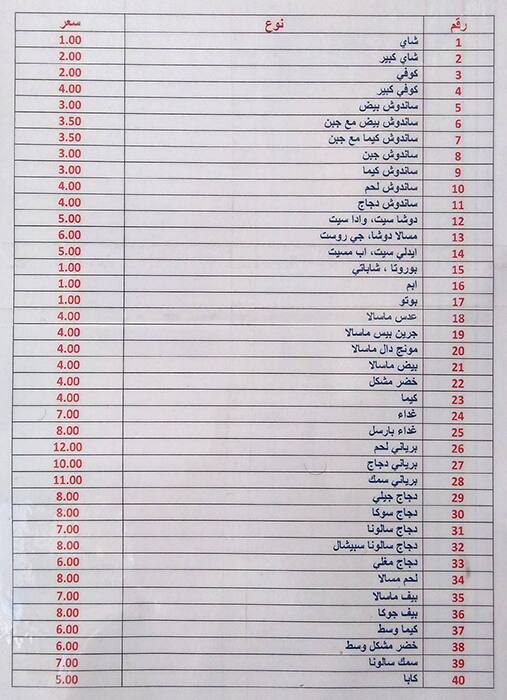 رقم نوع سعر
1 شاي 1.00
2 شاي كبير 2.00
3 كوفي 2.00
4 كوفي كبير 4.00
5 ساندوش بيض 3.00
6 ساندوش بيض مع جبن 3.50
7 ساندوش كيما مع جبن 3.50
8 ساندوش جبن 3.00
9 ساندوش كيما 3.00
10 ساندوش لحم 4.00
11 ساندوش دجاج 4.00
12 دوشا سيت، وادا سيت 5.00
13 مسالا دوشا، جي روست 6.00
14 ايدلي سيت، اب مسيت 5.00
15 بوروتا ، شاباتي 1.00
16 ابم 1.00
17 بوتو 1.00
18 عدس ماسالا 4.00
19 جرين بيس ماسالا 4.00
20 مونج دال ماسالا 4.00
21 بيض ماسالا 4.00
22 خضر مشكل 4.00
23 كيما 4.00
24 غداء 7.00
25 غداء بارسل 8.00
26 برياني لحم 12.00
27 برياني دجاج 10.00
28 برياني سمك 11.00
29 دجاج جيلي 8.00
30 دجاج سوكا 8.00
31 دجاج سالونا 7.00
32 دجاج سالونا سبيشال 8.00
33 دجاج مغلي 6.00
34 لحم مسالا 8.00
35 بيف ماسالا 7.00
36 بيف جوكا 8.00
37 كيما وسط 6.00
38 خضر مشكل وسط 6.00
39 سمك سالونا 7.00
40 كابا 5.00